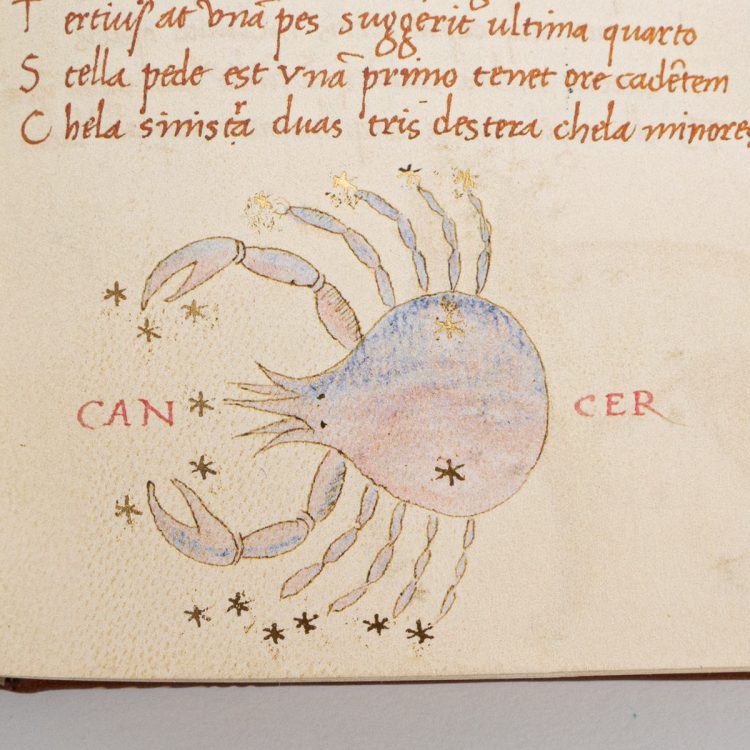 T ertius at vnā pes suggerit ultima quarto
S tella pede est vnā primo tenet ore cadētem
C hela sinistra duas tris destera chela minores
CAN CER